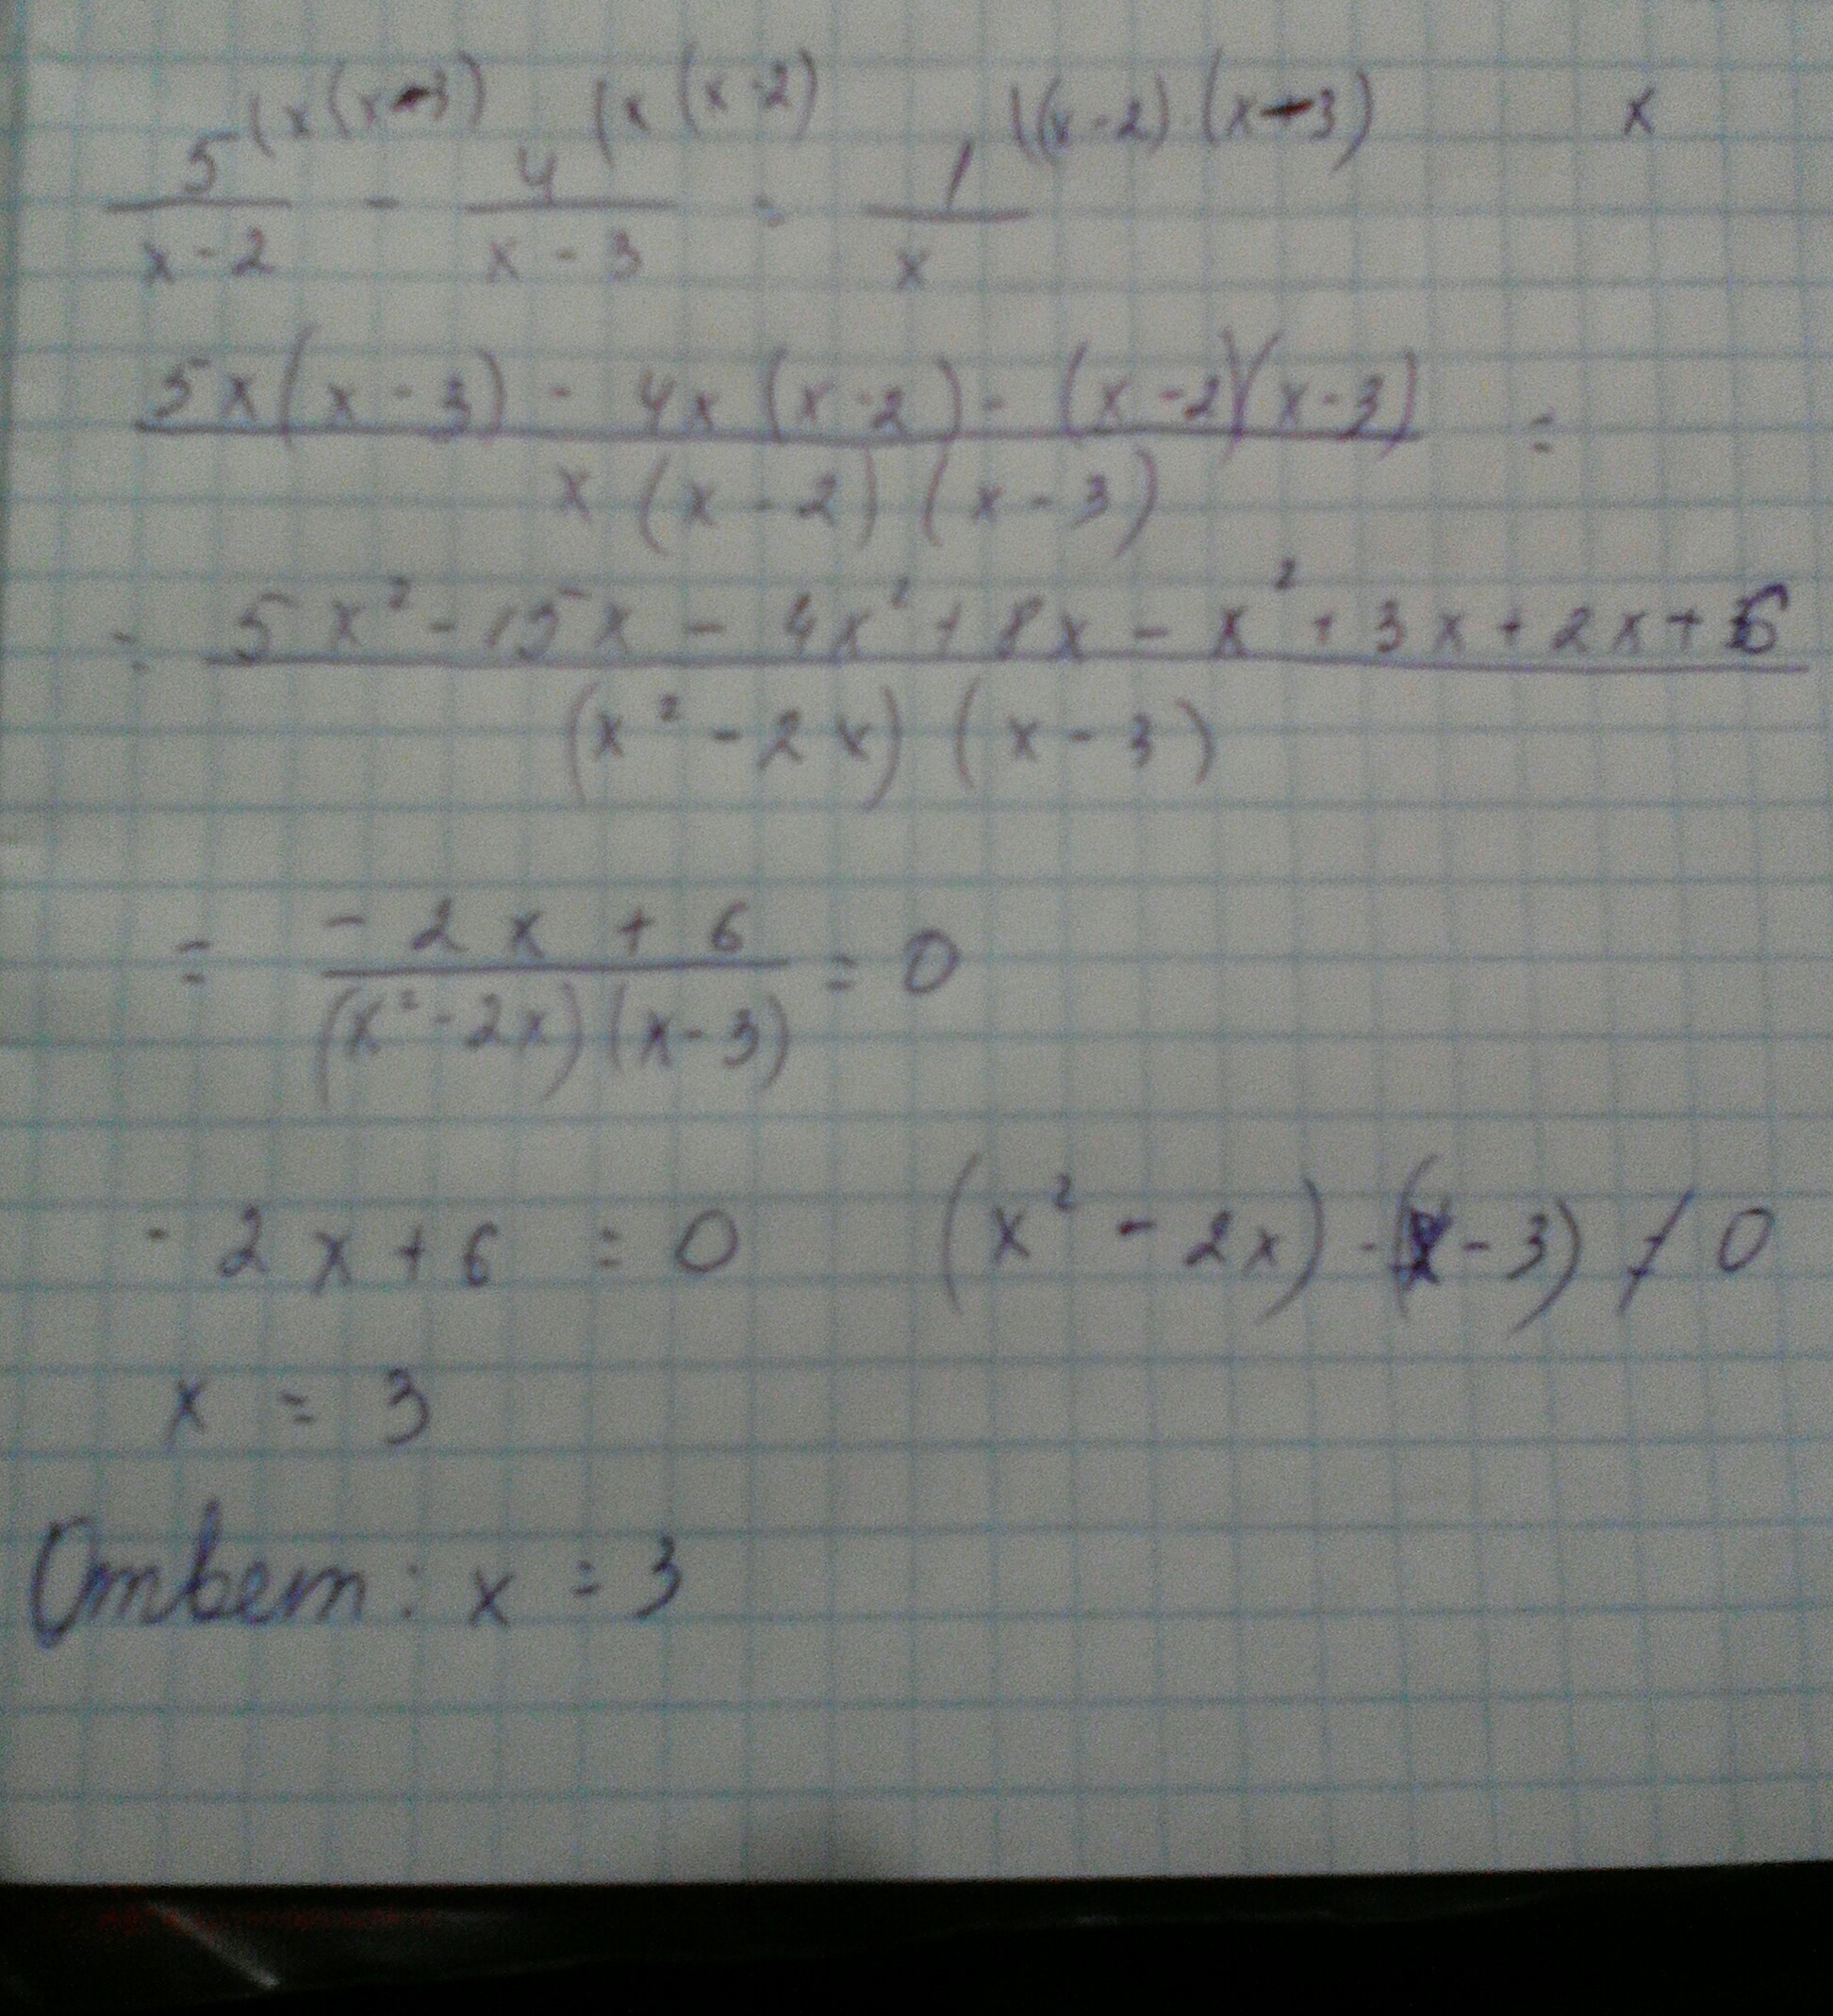 5 (x(x-3) 4 (x(x-2) 1 ((x-2)·(x-3) x
x-2 - x-3 = x
5x(x-3) - 4x(x-2) - (x-2)(x-3) =
x(x-2)(x-3)
= 5x² - 15x - 4x² + 8x - x² + 3x + 2x + 6
(x² - 2x)(x - 3)
= -2x + 6 = 0
(x² - 2x)(x - 3)
-2x + 6 = 0 (x² - 2x) · (x - 3) ≠ 0
x = 3
Ответ: x = 3